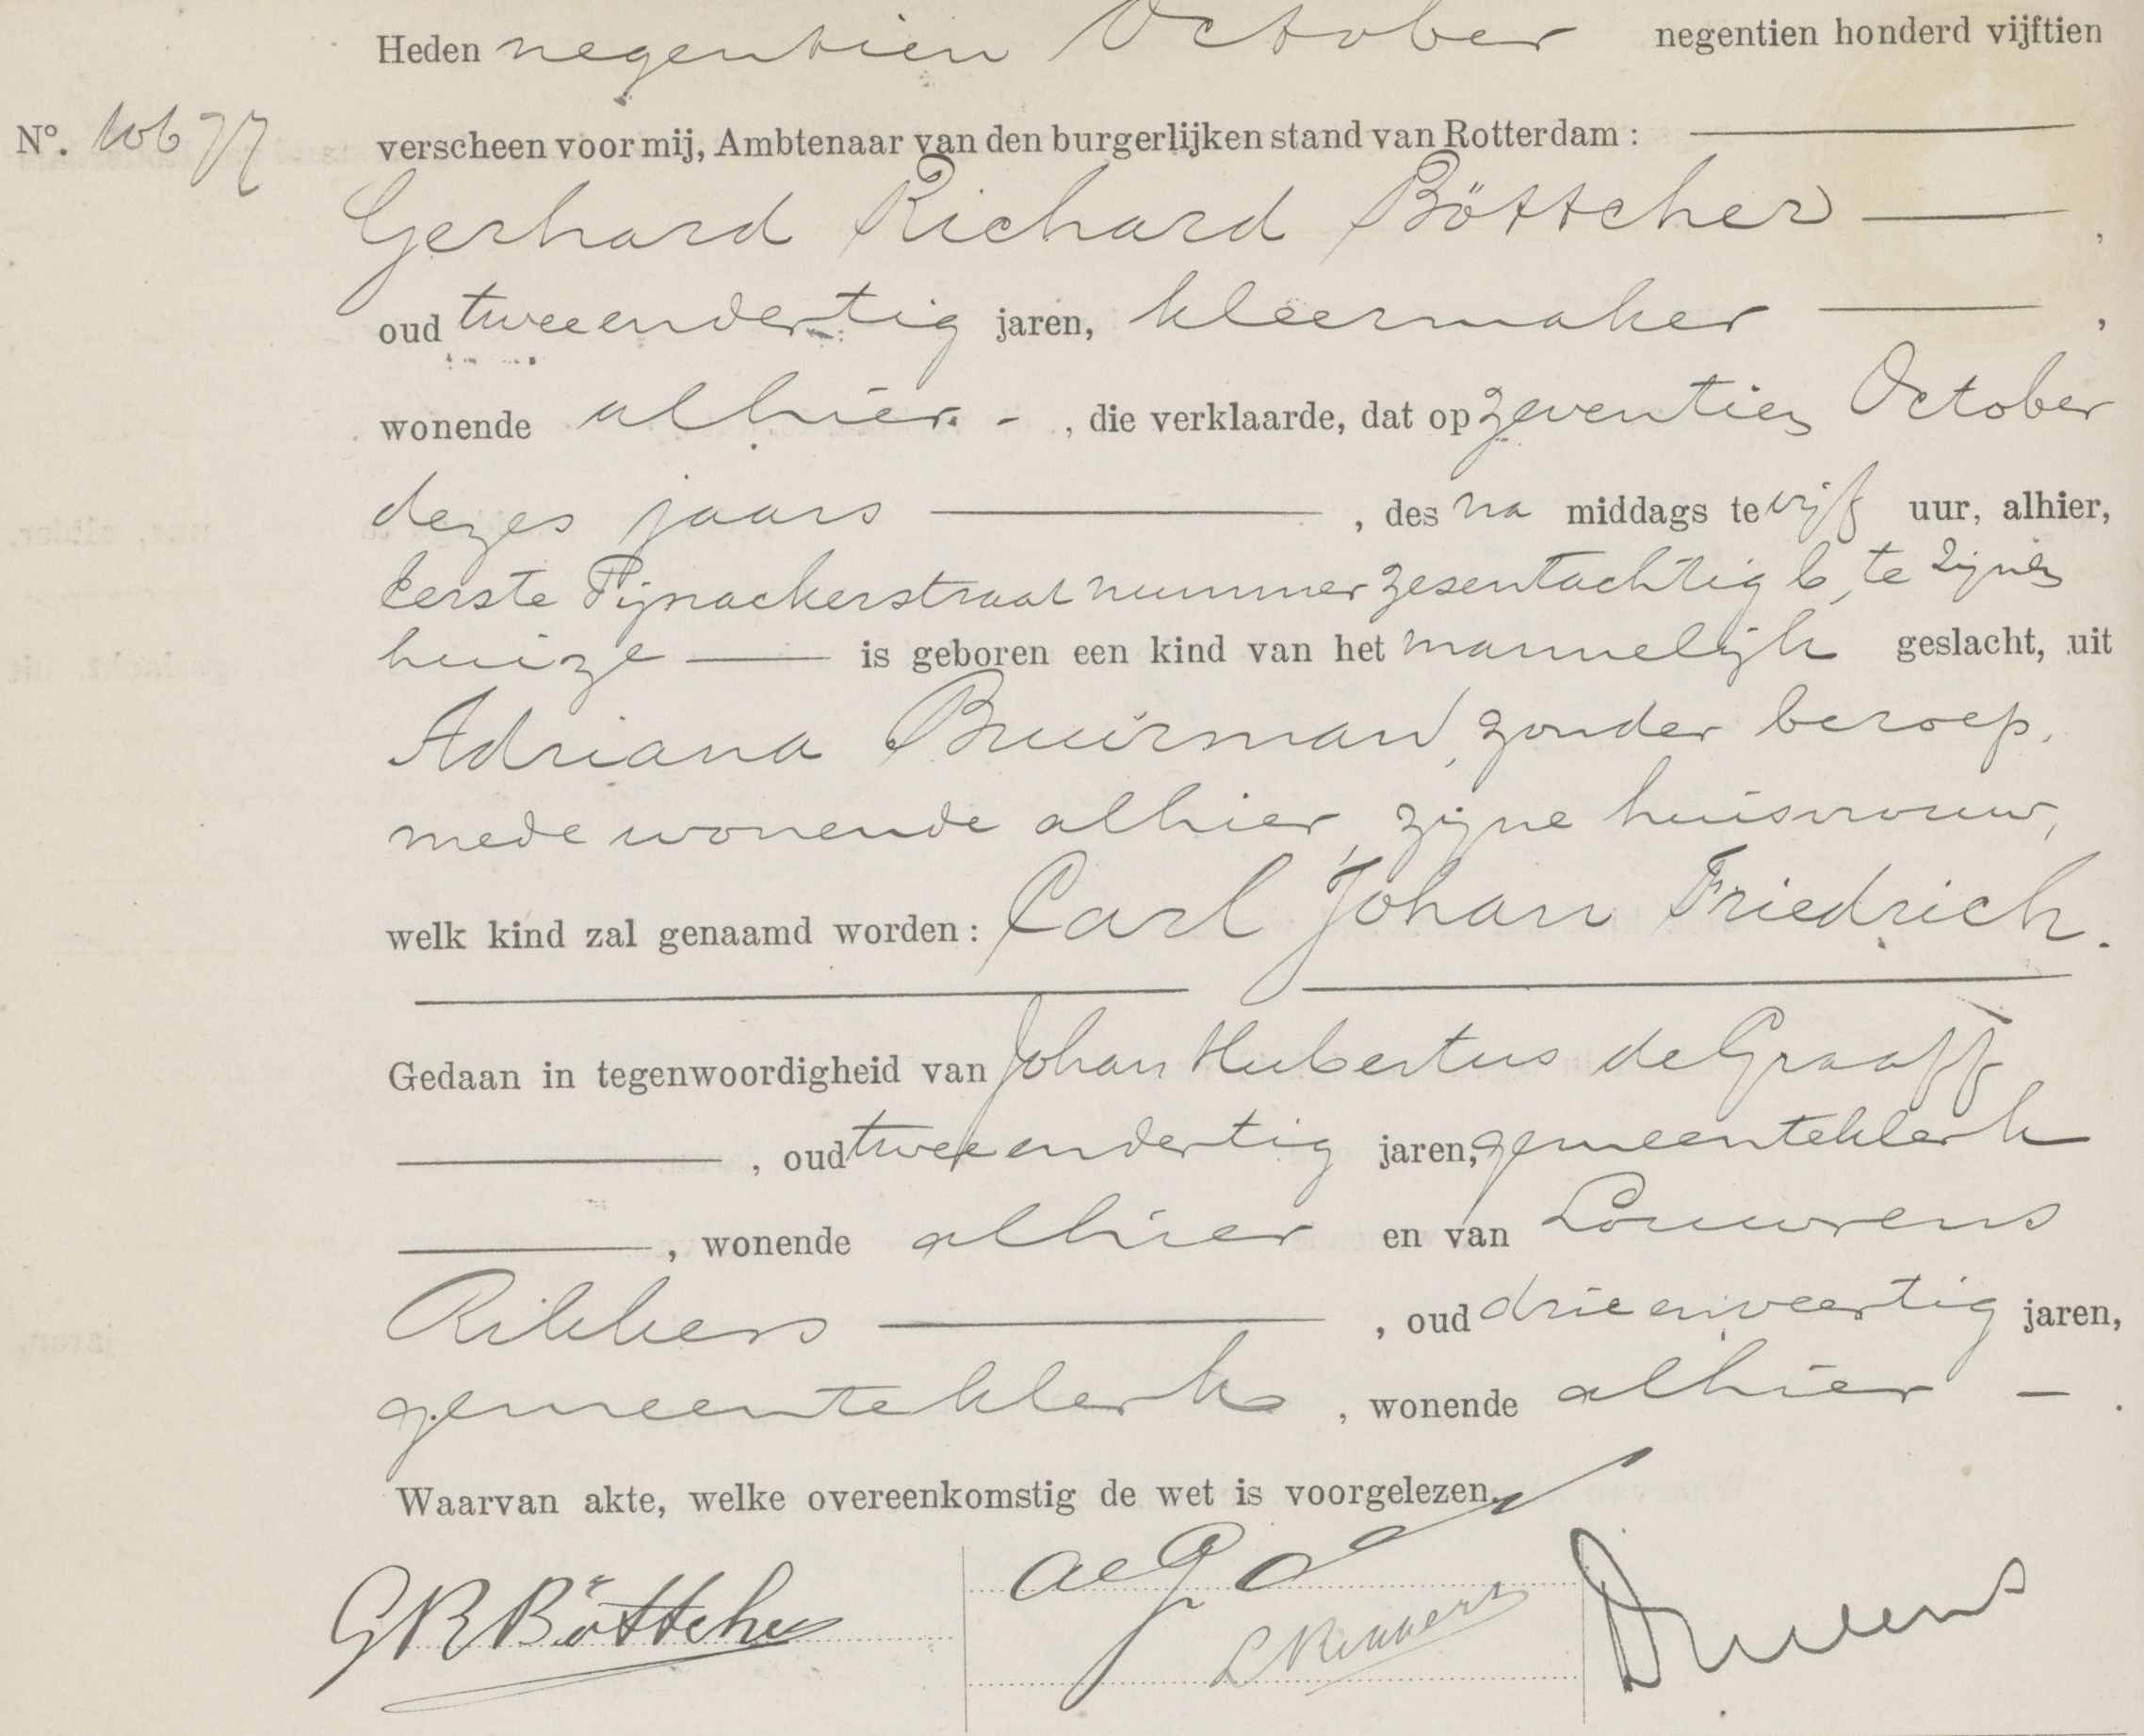 Heden negentien October negentien honderd vijftien
N°. 10677
verscheen voor mij, Ambtenaar van den burgerlijken stand van Rotterdam :
Gerhard Richard Böttcher ,
oud tweeendertig jaren, kleermaker ,
wonende alhier. - , die verklaarde, dat op zeventien October
dezes jaars , des na middags te vijf uur, alhier,
Eerste Pijnackerstraat nummer zesentachtig b, te zijnen
huize is geboren een kind van het mannelijk geslacht, uit
Adriana Buurman, zonder beroep,
mede wonende alhier, zijne huisvrouw,
welk kind zal genaamd worden: Carl Johan Friedrich.
Gedaan in tegenwoordigheid van Johan Hubertus de Graaff
, oud tweeendertig jaren, gemeenteklerk
, wonende alhier en van Louwrens
Rikkers , oud drieenveertig jaren,
gemeenteklerk , wonende alhier - .
Waarvan akte, welke overeenkomstig de wet is voorgelezen.
GRBöttcher
L Rikkers